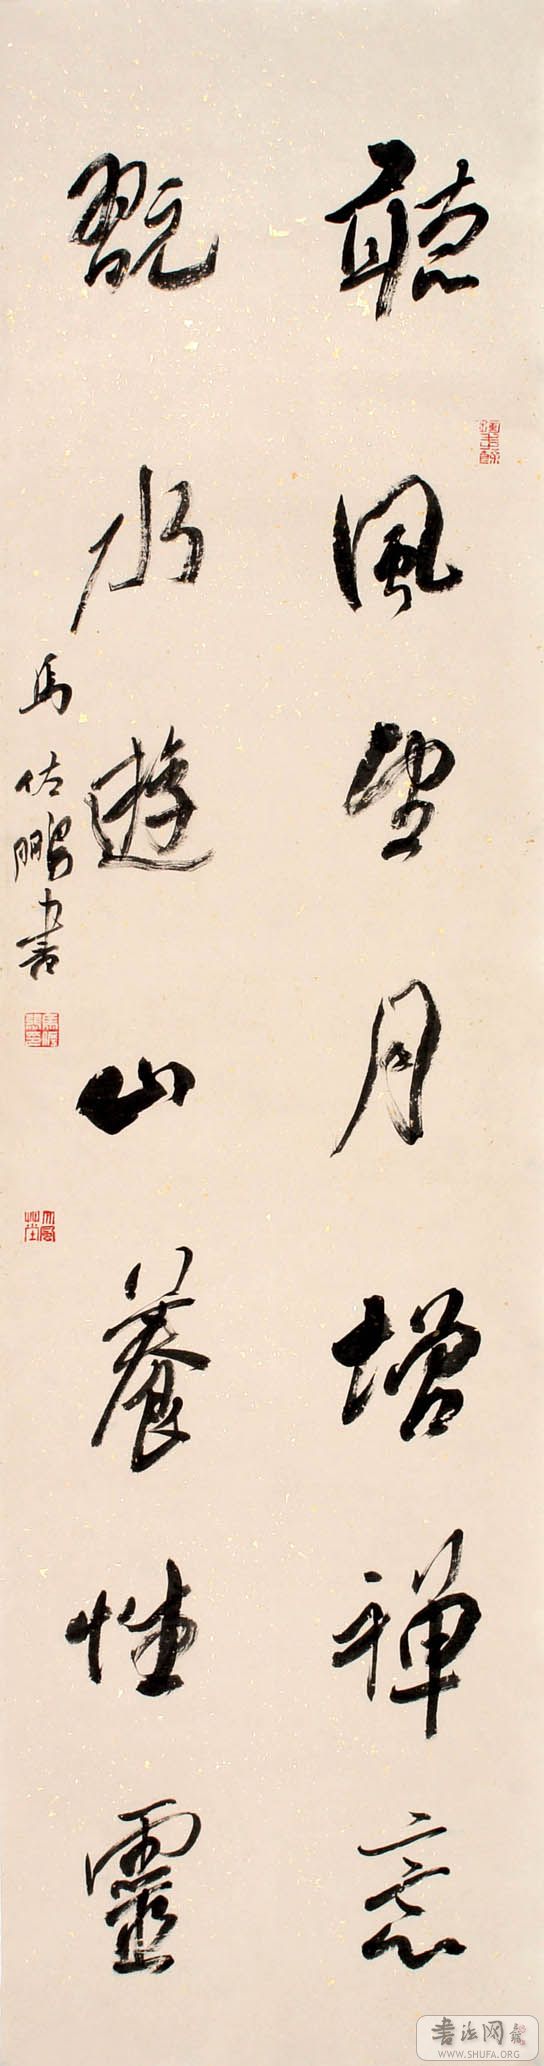 聽風望月增禪意
翫水遊山養性靈
馬佑鵬書
書法网
WWW.SHUFA.ORG